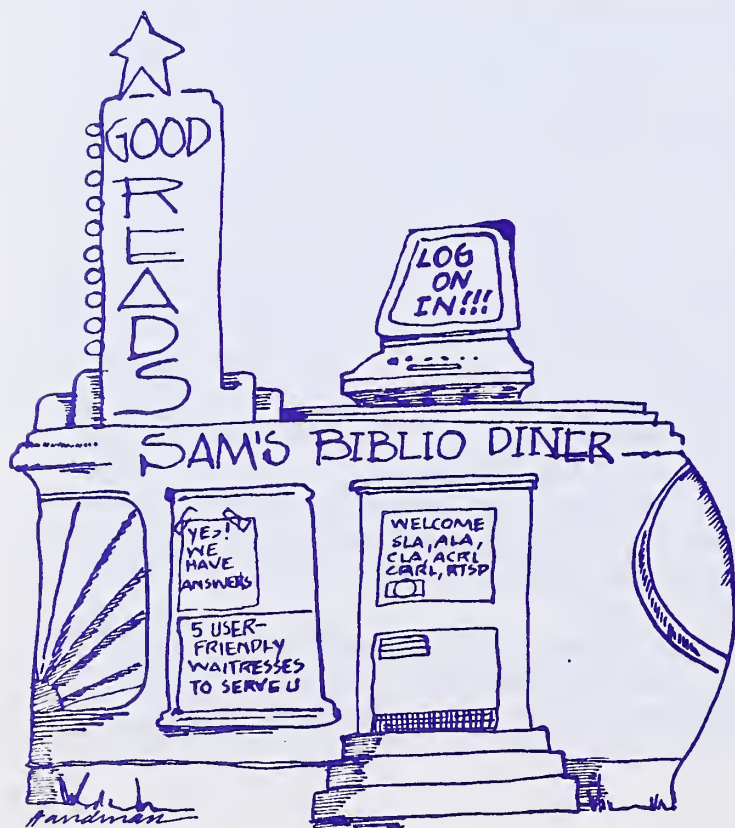 GOOD
READS
LOG
ON
IN!!!
SAM'S BIBLIO DINER
YES!
WE
HAVE
ANSWERS
5 USER-
FRIENDLY
WAITRESSES
TO SERVE U
WELCOME
SLA, ALA,
CLA, ACRL
CARL, RTSD
Handman